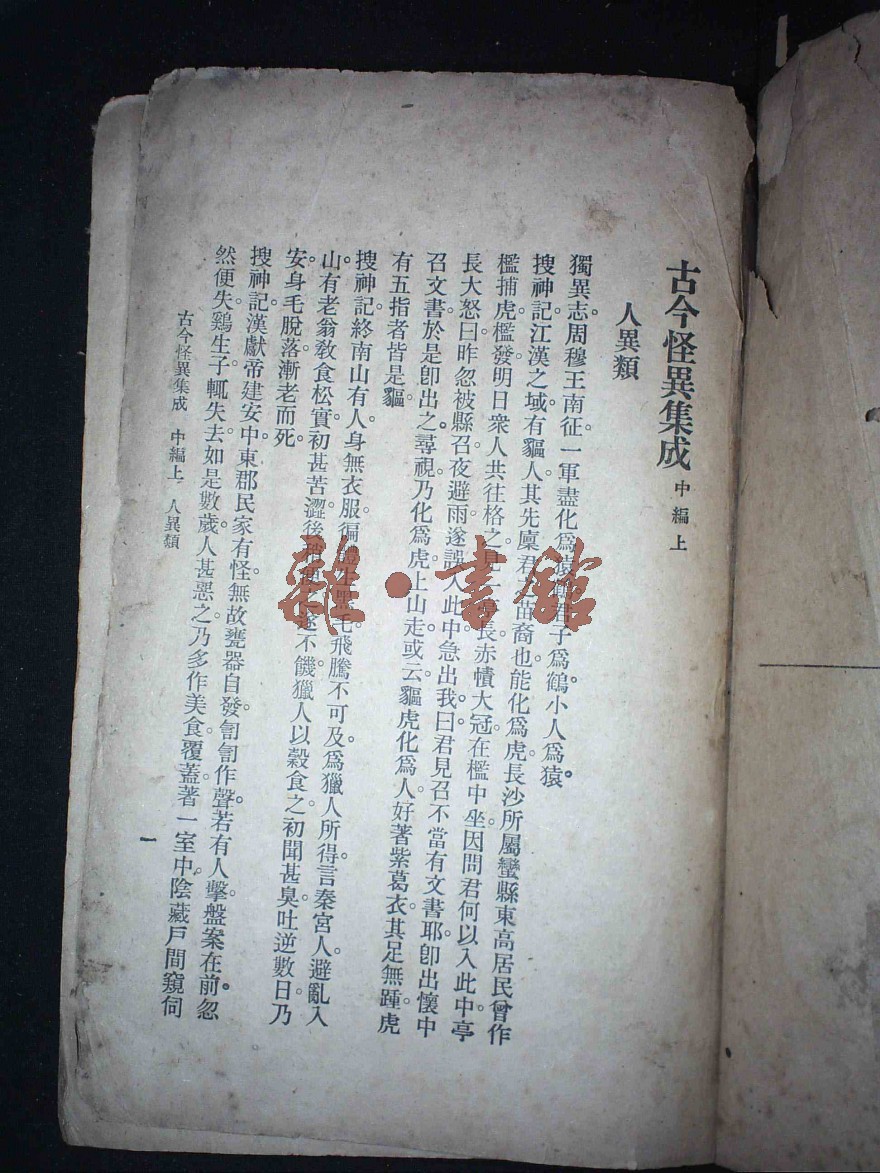 古今怪異集成 中編上
人異類
獨異志周穆王南征。一軍盡化爲猿鶴君子爲鶴小人爲猿。
搜神記江漢之域有貙人其先廩君之苗裔也能化爲虎。長沙所屬蠻縣東高居民曾作
檻捕虎檻發。明日衆人共往格之見一亭長赤幘大冠在檻中坐。因問君何以入此中。亭
長大怒曰昨忽被縣召夜避雨遂誤入此中急出我。曰君見召不當有文書耶。卽出懷中
召文書。於是卽出之。尋視乃化爲虎上山走。或云貙虎化爲人好著紫葛衣其足無踵虎
有五指者皆是貙
搜神記終南山有人身無衣服。徧體生黑毛飛騰不可及爲獵人所得。言秦宮人。避亂入
山。有老翁敎食松實。初甚苦澀後稍便之。遂不饑。獵人以穀食之。初聞甚臭吐逆數日乃
安。身毛脫落漸老而死。
搜神記漢獻帝建安中東郡民家有怪無故甕器自發。訇訇作聲若有人擊。盤案在前。忽
然便失。鷄生子。輒失去。如是數歲人甚惡之。乃多作美食。覆蓋著一室中。陰藏戶間窺伺
古今怪異集成 中編上 人異類
一
雜·書館